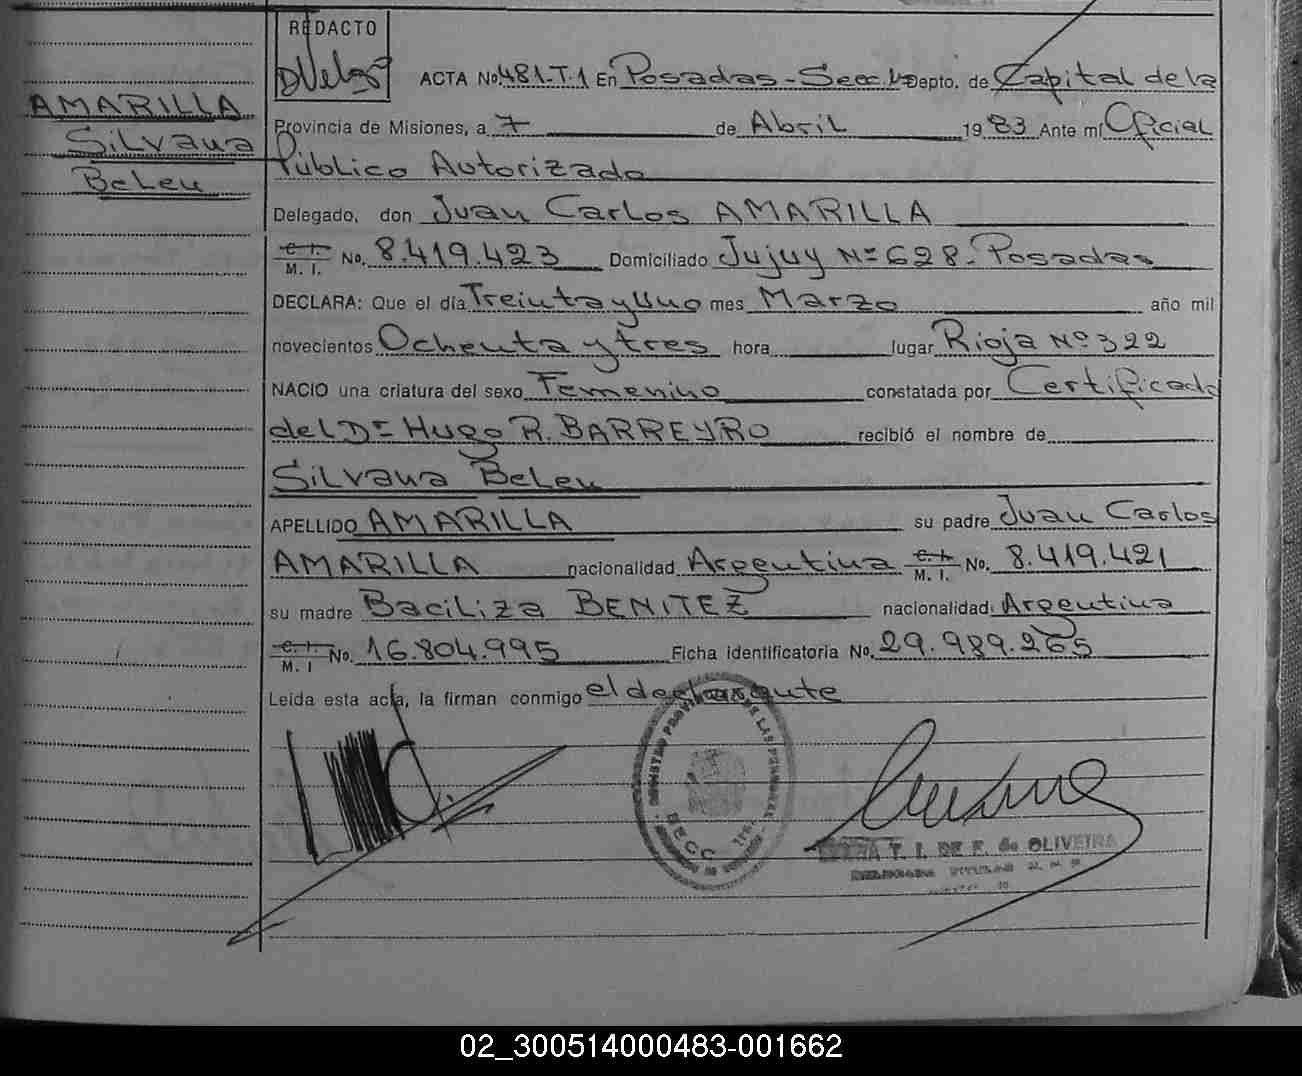 REDACTO
AMARILLA
Silvana
Belen
ACTA No. 481-T.1 En Posadas - Secc. Depto. de Capital de la
Provincia de Misiones, a 7 de Abril 1983 Ante mí Oficial
Público Autorizado
Delegado, don Juan Carlos AMARILLA
C. I. M. I. No. 8.419.423 Domiciliado Jujuy Nº 628 - Posadas
DECLARA: Que el día Treinta y Uno mes Marzo año mil
novecientos Ochenta y tres hora lugar Rioja Nº 322
NACIO una criatura del sexo Femenino constatada por Certificado
del Dr Hugo R. BARREYRO recibió el nombre de
Silvana Belen
APELLIDO AMARILLA su padre Juan Carlos
AMARILLA nacionalidad Argentina C. I. M. I. No. 8.419.421
su madre Baciliza BENITEZ nacionalidad Argentina
C. I. M. I No. 16.804.995 Ficha Identificatoria No. 29.989.265
Leída esta acta, la firman conmigo el declarante
REGISTRO PROVINCIAL DE LAS PERSONAS
T. I. DE F. de OLIVEIRA
02_300514000483-001662